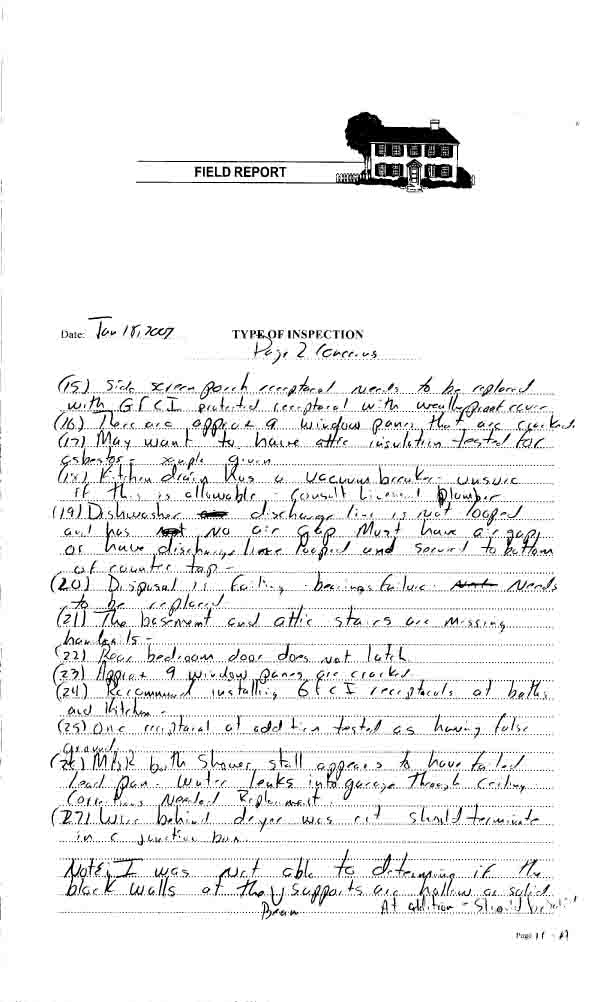 FIELD REPORT
Date: Jan 18, 2007 TYPE OF INSPECTION
Page 2 Concerns
(15) Side screen porch receptacal needs to be replaced
with GFCI protected receptacal with weatherproof cover
(16) There are approx 9 window panes that are cracked.
(17) May want to have attic insulation tested for
asbestos - given
(18) Kitchen drain has a vacuum breaker - unsure
if this is allowable - consult Licensed Plumber
(19) Dishwasher discharge line is not looped
and has no air gap Must have air gap
or have discharge line looped and secured to bottom
of counter top -
(20) Disposal is failing bearings failure - Needs
to be replaced
(21) The basement and attic stairs are missing
handrails -
(22) Rear bedroom door does not latch
(23) Approx 9 window panes are cracked
(24) Recommend installing GFCI receptacals at baths
and Kitchen -
(25) One receptacal at addition tested as having false
ground
(26) M/BR bath shower stall appears to have failed
lead pan. Water leaks into garage through ceiling
Corrections Needed Replacment.
(27) Wire behind dryer was cut should terminate
in a junction box
Note; I was not able to determine if the
block walls at the supports are hollow or solid
Beam At addition - Should be Solid
Page 11 - A